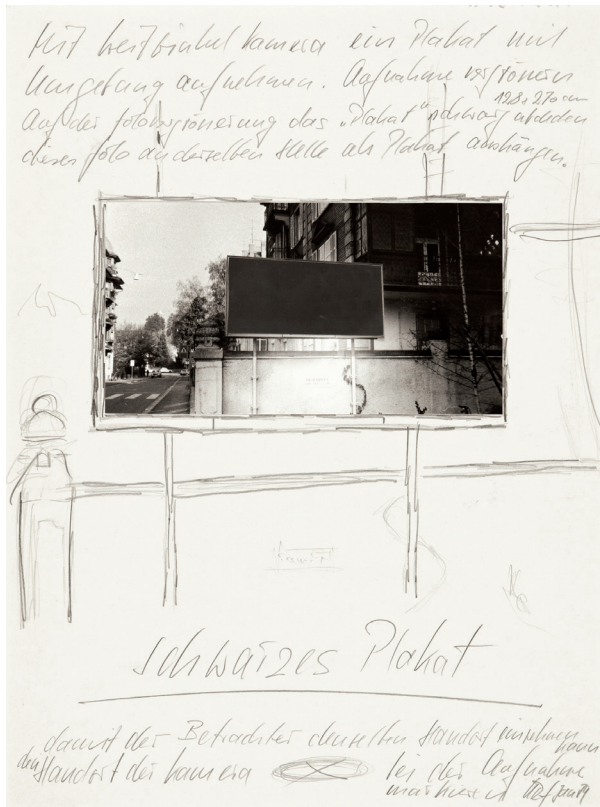 Mit Weitwinkel Kamera ein Plakat mit
Umgebung aufnehmen. Aufnahme vergrössern
128 x 270 cm
Auf der fotovergrösserung das „Plakat" schwarz abdecken
dieses foto an derselben Stelle als Plakat aushängen.
schwarzes Plakat
damit der Betrachter denselben Standort einnehmen kann
den Standort der Kamera bei der Aufnahme
markieren